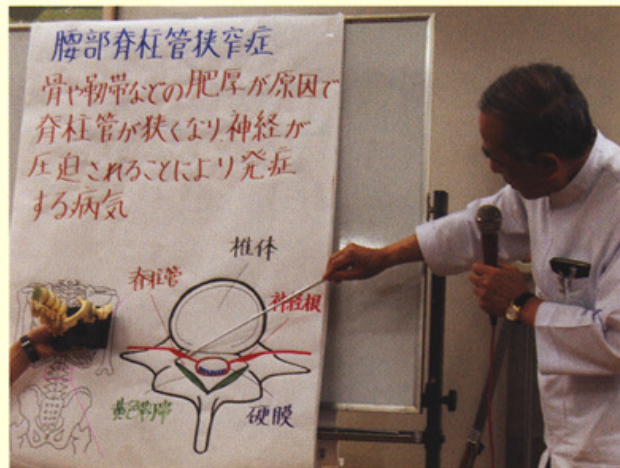 腰部脊柱管狭窄症
骨や靭帯などの肥厚が原因で
脊柱管が狭くなり神経が
圧迫されることにより発症
する病気
椎体
脊柱管
神経根
黄色靭帯
硬膜